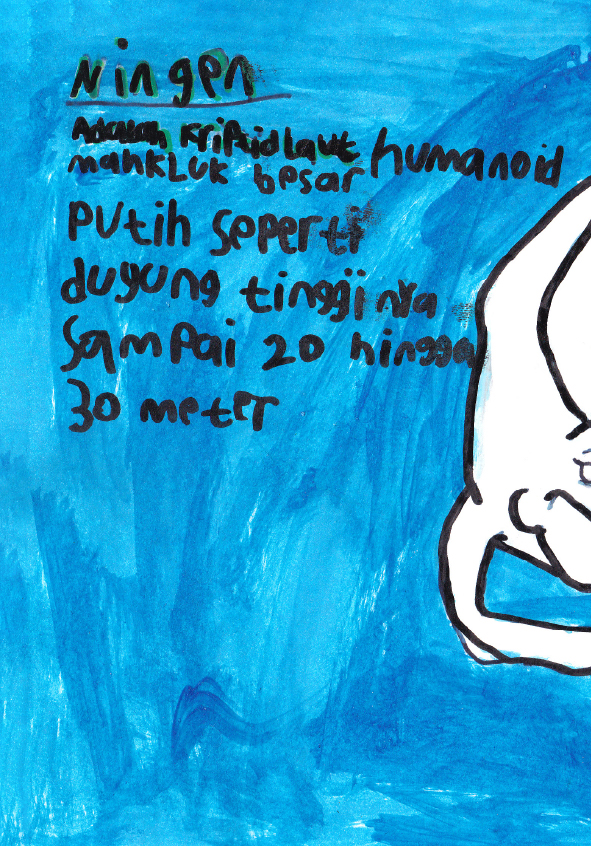 Ningen
Adalah kriptid laut humanoid
mahkluk besar
putih seperti
duyung tingginya
sampai 20 hingga
30 meter